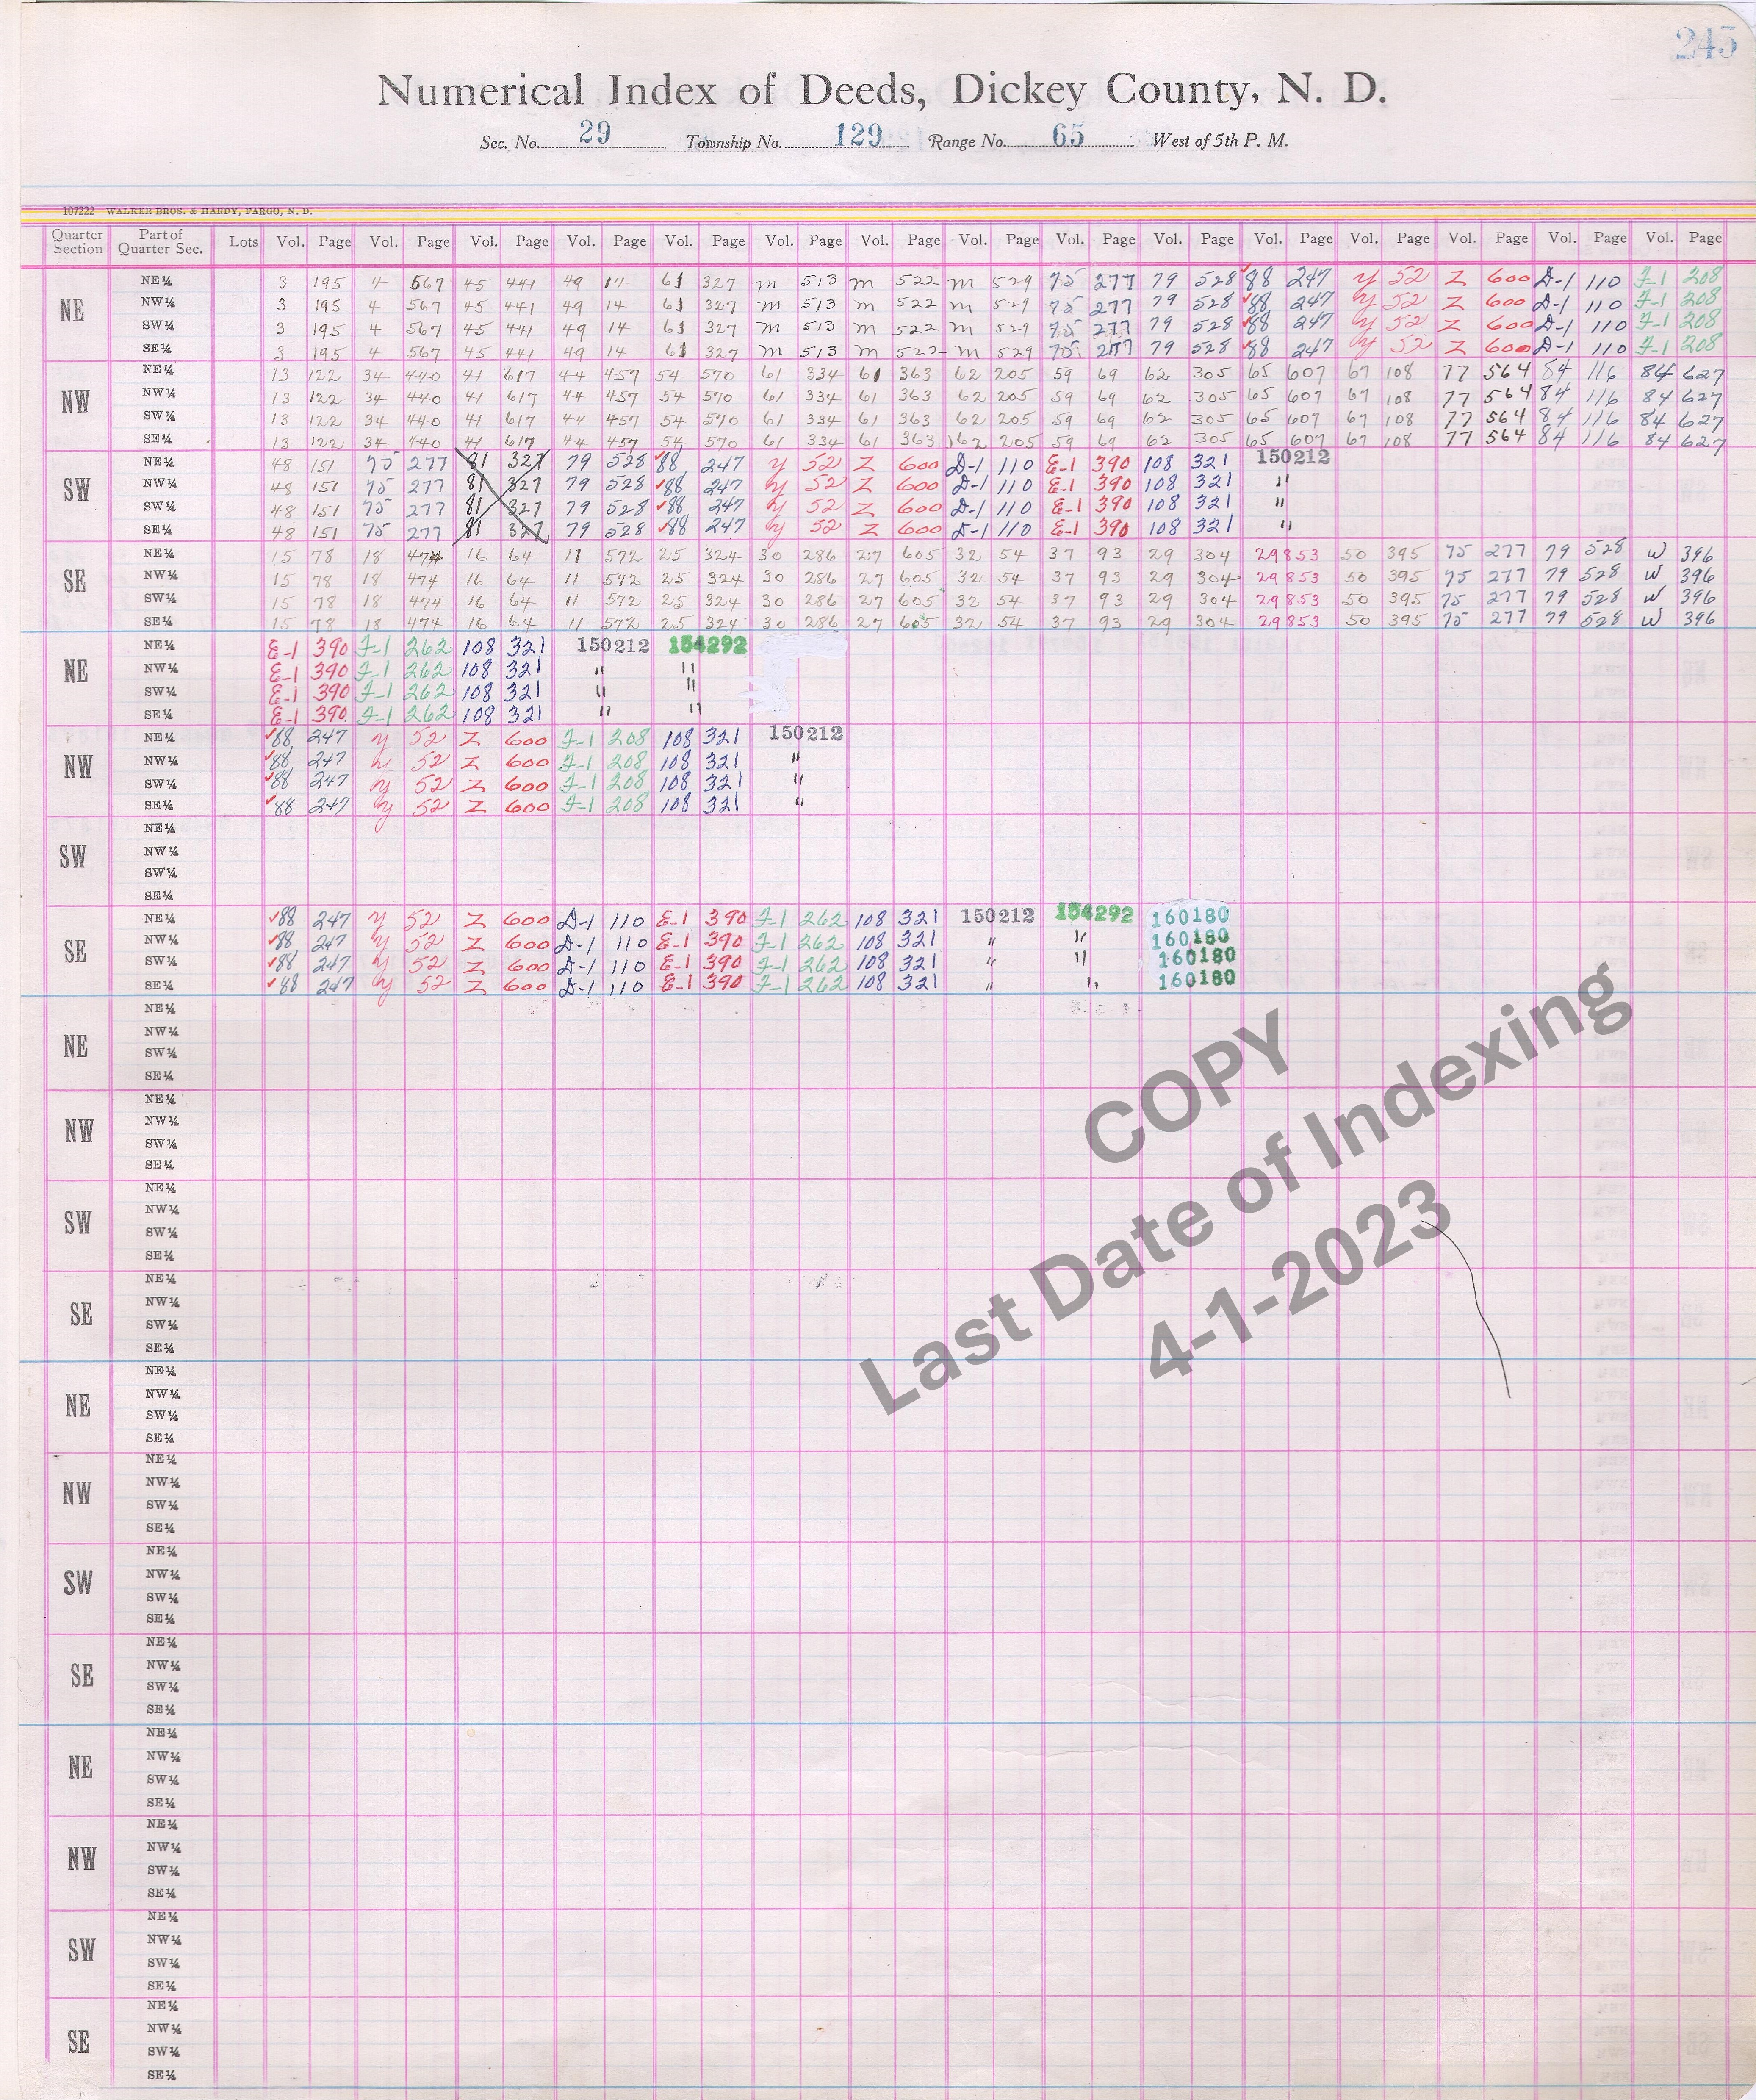 245
Numerical Index of Deeds, Dickey County, N. D.
Sec. No. 29 Township No. 129 Range No. 65 West of 5th P. M.
107222 WALKER BROS. & HARDY, FARGO, N. D.
Quarter Section Part of Quarter Sec. Lots Vol. Page Vol. Page Vol. Page Vol. Page Vol. Page Vol. Page Vol. Page Vol. Page Vol. Page Vol. Page Vol. Page Vol. Page Vol. Page Vol. Page Vol. Page
NE
NE¼ 3 195 4 567 45 441 49 14 61 327 m 513 m 522 m 529 75 277 79 528 ✓88 247 y 52 Z 600 D-1 110 F-1 208
NW¼ 3 195 4 567 45 441 49 14 61 327 m 513 m 522 m 529 75 277 79 528 ✓88 247 y 52 Z 600 D-1 110 F-1 208
SW¼ 3 195 4 567 45 441 49 14 61 327 m 513 m 522 m 529 75 277 79 528 ✓88 247 y 52 Z 600 D-1 110 F-1 208
SE¼ 3 195 4 567 45 441 49 14 61 327 m 513 m 522 m 529 75 277 79 528 ✓88 247 y 52 Z 600 D-1 110 F-1 208
NW
NE¼ 13 122 34 440 41 617 44 457 54 570 61 334 61 363 62 205 59 69 62 305 65 607 67 108 77 564 84 116 84 627
NW¼ 13 122 34 440 41 617 44 457 54 570 61 334 61 363 62 205 59 69 62 305 65 607 67 108 77 564 84 116 84 627
SW¼ 13 122 34 440 41 617 44 457 54 570 61 334 61 363 62 205 59 69 62 305 65 607 67 108 77 564 84 116 84 627
SE¼ 13 122 34 440 41 617 44 457 54 570 61 334 61 363 62 205 59 69 62 305 65 607 67 108 77 564 84 116 84 627
SW
NE¼ 48 151 75 277 81 327 79 528 ✓88 247 y 52 Z 600 D-1 110 E-1 390 108 321 150212
NW¼ 48 151 75 277 81 327 79 528 ✓88 247 y 52 Z 600 D-1 110 E-1 390 108 321 "
SW¼ 48 151 75 277 81 327 79 528 ✓88 247 y 52 Z 600 D-1 110 E-1 390 108 321 "
SE¼ 48 151 75 277 81 327 79 528 ✓88 247 y 52 Z 600 D-1 110 E-1 390 108 321 "
SE
NE¼ 15 78 18 474 16 64 11 572 25 324 30 286 27 605 32 54 37 93 29 304 29853 50 395 75 277 79 528 W 396
NW¼ 15 78 18 474 16 64 11 572 25 324 30 286 27 605 32 54 37 93 29 304 29853 50 395 75 277 79 528 W 396
SW¼ 15 78 18 474 16 64 11 572 25 324 30 286 27 605 32 54 37 93 29 304 29853 50 395 75 277 79 528 W 396
SE¼ 15 78 18 474 16 64 11 572 25 324 30 286 27 605 32 54 37 93 29 304 29853 50 395 75 277 79 528 W 396
NE
NE¼ E-1 390 F-1 262 108 321 150212 154292
NW¼ E-1 390 F-1 262 108 321 " "
SW¼ E-1 390 F-1 262 108 321 " "
SE¼ E-1 390 F-1 262 108 321 " "
NW
NE¼ ✓88 247 y 52 Z 600 F-1 208 108 321 150212
NW¼ ✓88 247 y 52 Z 600 F-1 208 108 321 "
SW¼ ✓88 247 y 52 Z 600 F-1 208 108 321 "
SE¼ ✓88 247 y 52 Z 600 F-1 208 108 321 "
SW
NE¼
NW¼
SW¼
SE¼
SE
NE¼ ✓88 247 y 52 Z 600 D-1 110 E-1 390 F-1 262 108 321 150212 154292 160180
NW¼ ✓88 247 y 52 Z 600 D-1 110 E-1 390 F-1 262 108 321 " " 160180
SW¼ ✓88 247 y 52 Z 600 D-1 110 E-1 390 F-1 262 108 321 " " 160180
SE¼ ✓88 247 y 52 Z 600 D-1 110 E-1 390 F-1 262 108 321 " " 160180
NE
NE¼
NW¼
SW¼
SE¼
NW
NE¼
NW¼
SW¼
SE¼
SW
NE¼
NW¼
SW¼
SE¼
SE
NE¼
NW¼
SW¼
SE¼
NE
NE¼
NW¼
SW¼
SE¼
NW
NE¼
NW¼
SW¼
SE¼
SW
NE¼
NW¼
SW¼
SE¼
SE
NE¼
NW¼
SW¼
SE¼
NE
NE¼
NW¼
SW¼
SE¼
NW
NE¼
NW¼
SW¼
SE¼
SW
NE¼
NW¼
SW¼
SE¼
SE
NE¼
NW¼
SW¼
SE¼
COPY
Last Date of Indexing
4-1-2023